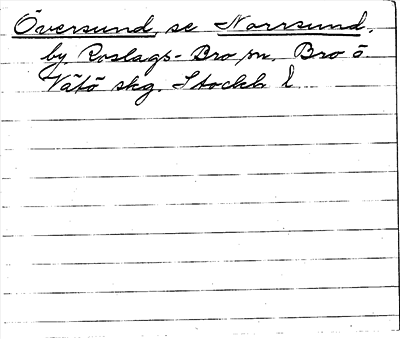 Översund, se Norrsund,
by. Roslags-Bro sn. Bro ö.
Vätö skg. Stockh l.